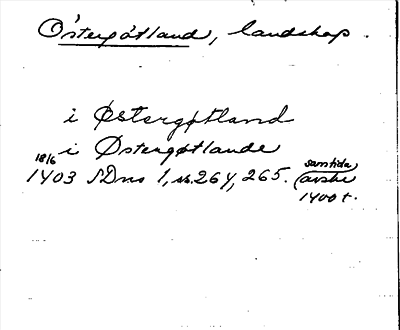 Östergötland, landskap.
i Østergøtland
i Østergøtlande
18/6 1403 SDns 1, s. 264, 265. (samtida avskr
1400 t.